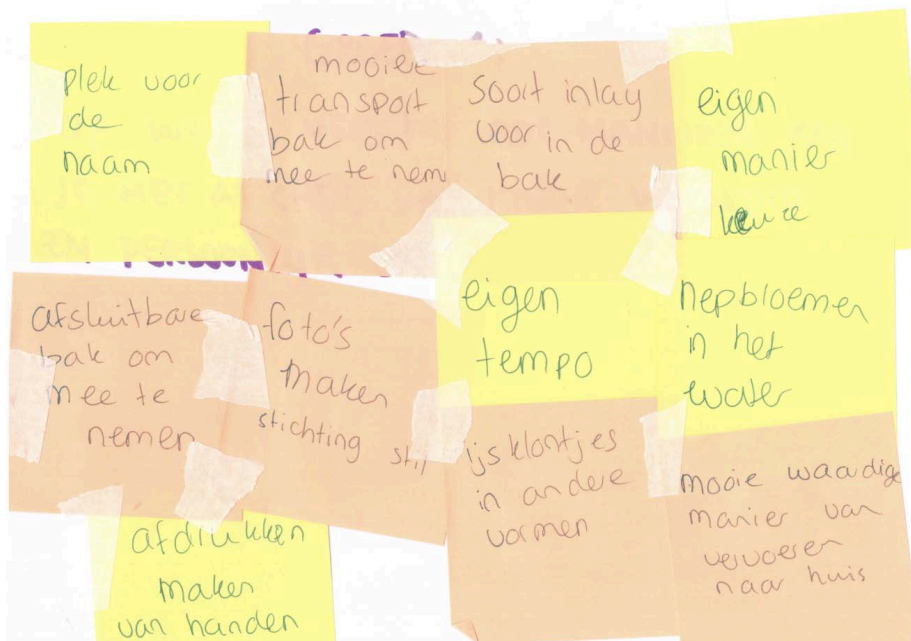 plek voor
de
naam
mooie
transport
bak om
mee te nem
soort inlay
voor in de
bak
eigen
manier
keuze
afsluitbare
bak om
mee te
nemen
foto's
maken
stichting still
eigen
tempo
nepbloemen
in het
water
ijsklontjes
in andere
vormen
mooie waardige
manier van
vervoeren
naar huis
afdrukken
maken
van handen